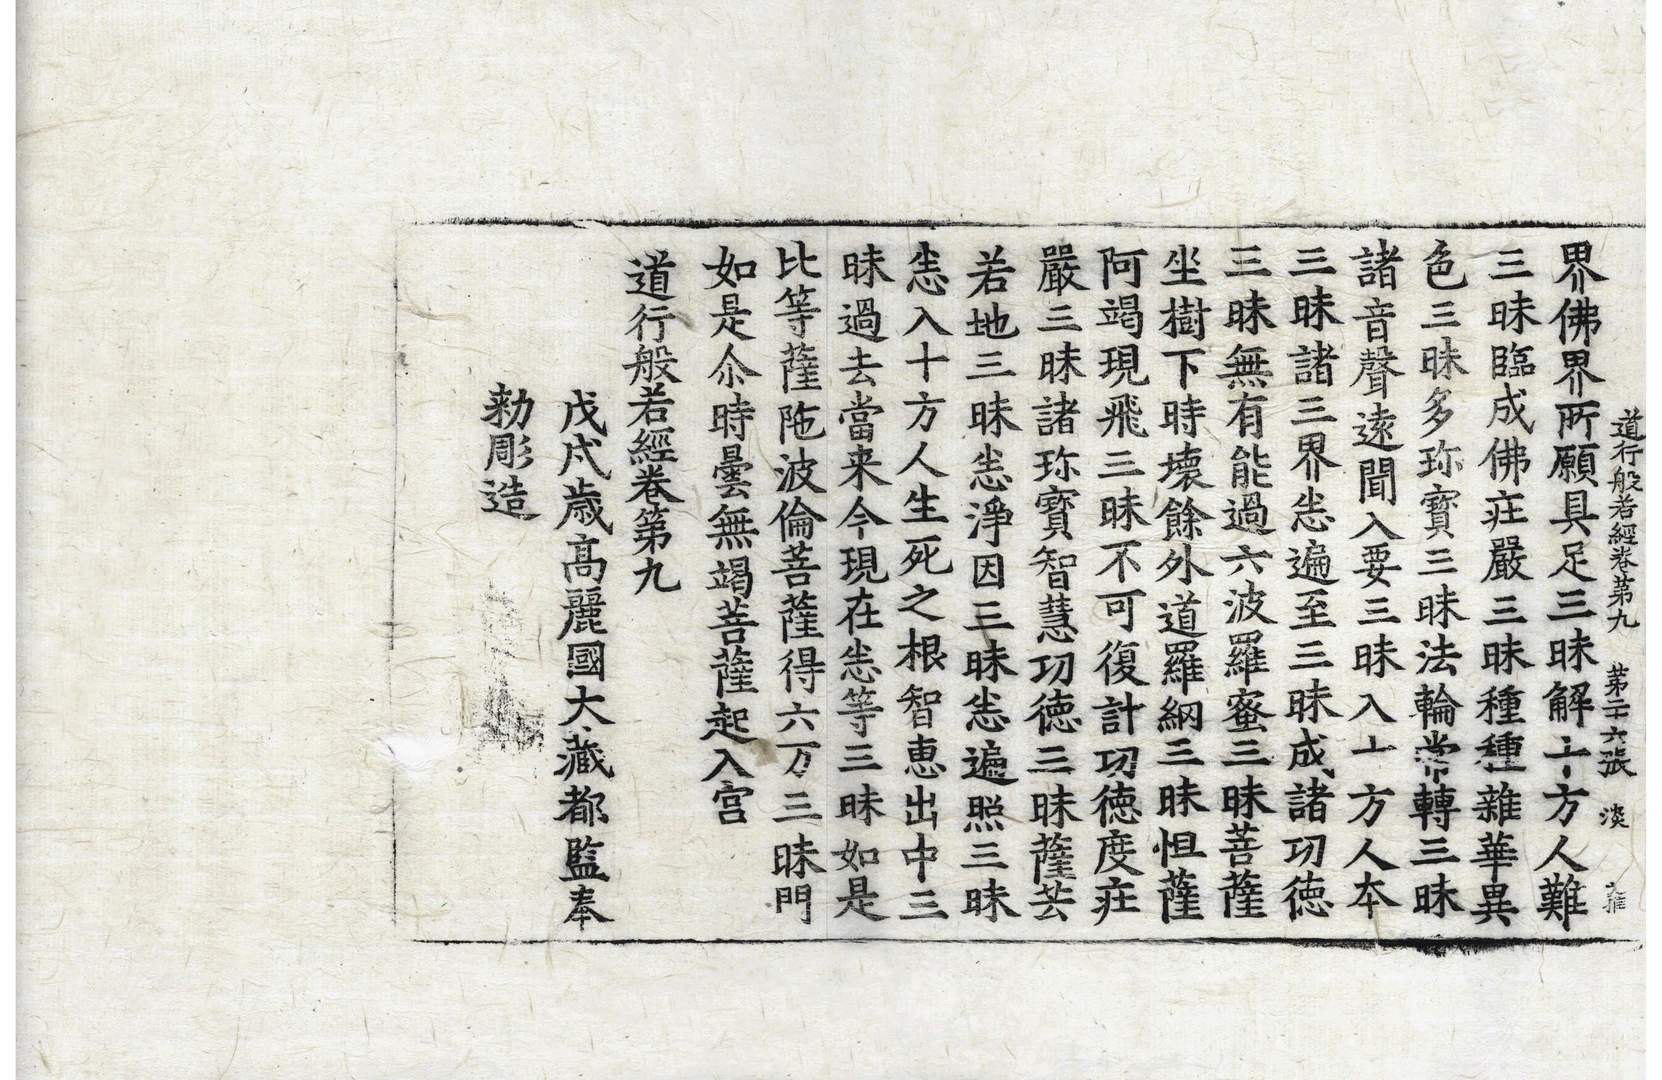 道行般若經卷第九　第二十六張　淡
界佛界所願具足三昧解十方人難
三昧臨成佛莊嚴三昧種種雜華異
色三昧多珎寶三昧法輪常轉三昧
諸音聲遠聞入要三昧入十方人本
三昧諸三界悉遍至三昧成諸功德
三昧無有能過六波羅蜜三昧菩薩
坐樹下時壞餘外道羅網三昧怛薩
阿竭現飛三昧不可復計功德度莊
嚴三昧諸珎寶智慧功德三昧薩芸
若地三昧悉淨因三昧悉遍照三昧
悉入十方人生死之根智惠出中三
昧過去當来今現在悉等三昧如是
比等薩陁波倫菩薩得六万三昧門
如是尒時曇無竭菩薩起入宫
道行般若經卷第九
戊戌歳高麗國大藏都監奉
勑彫造